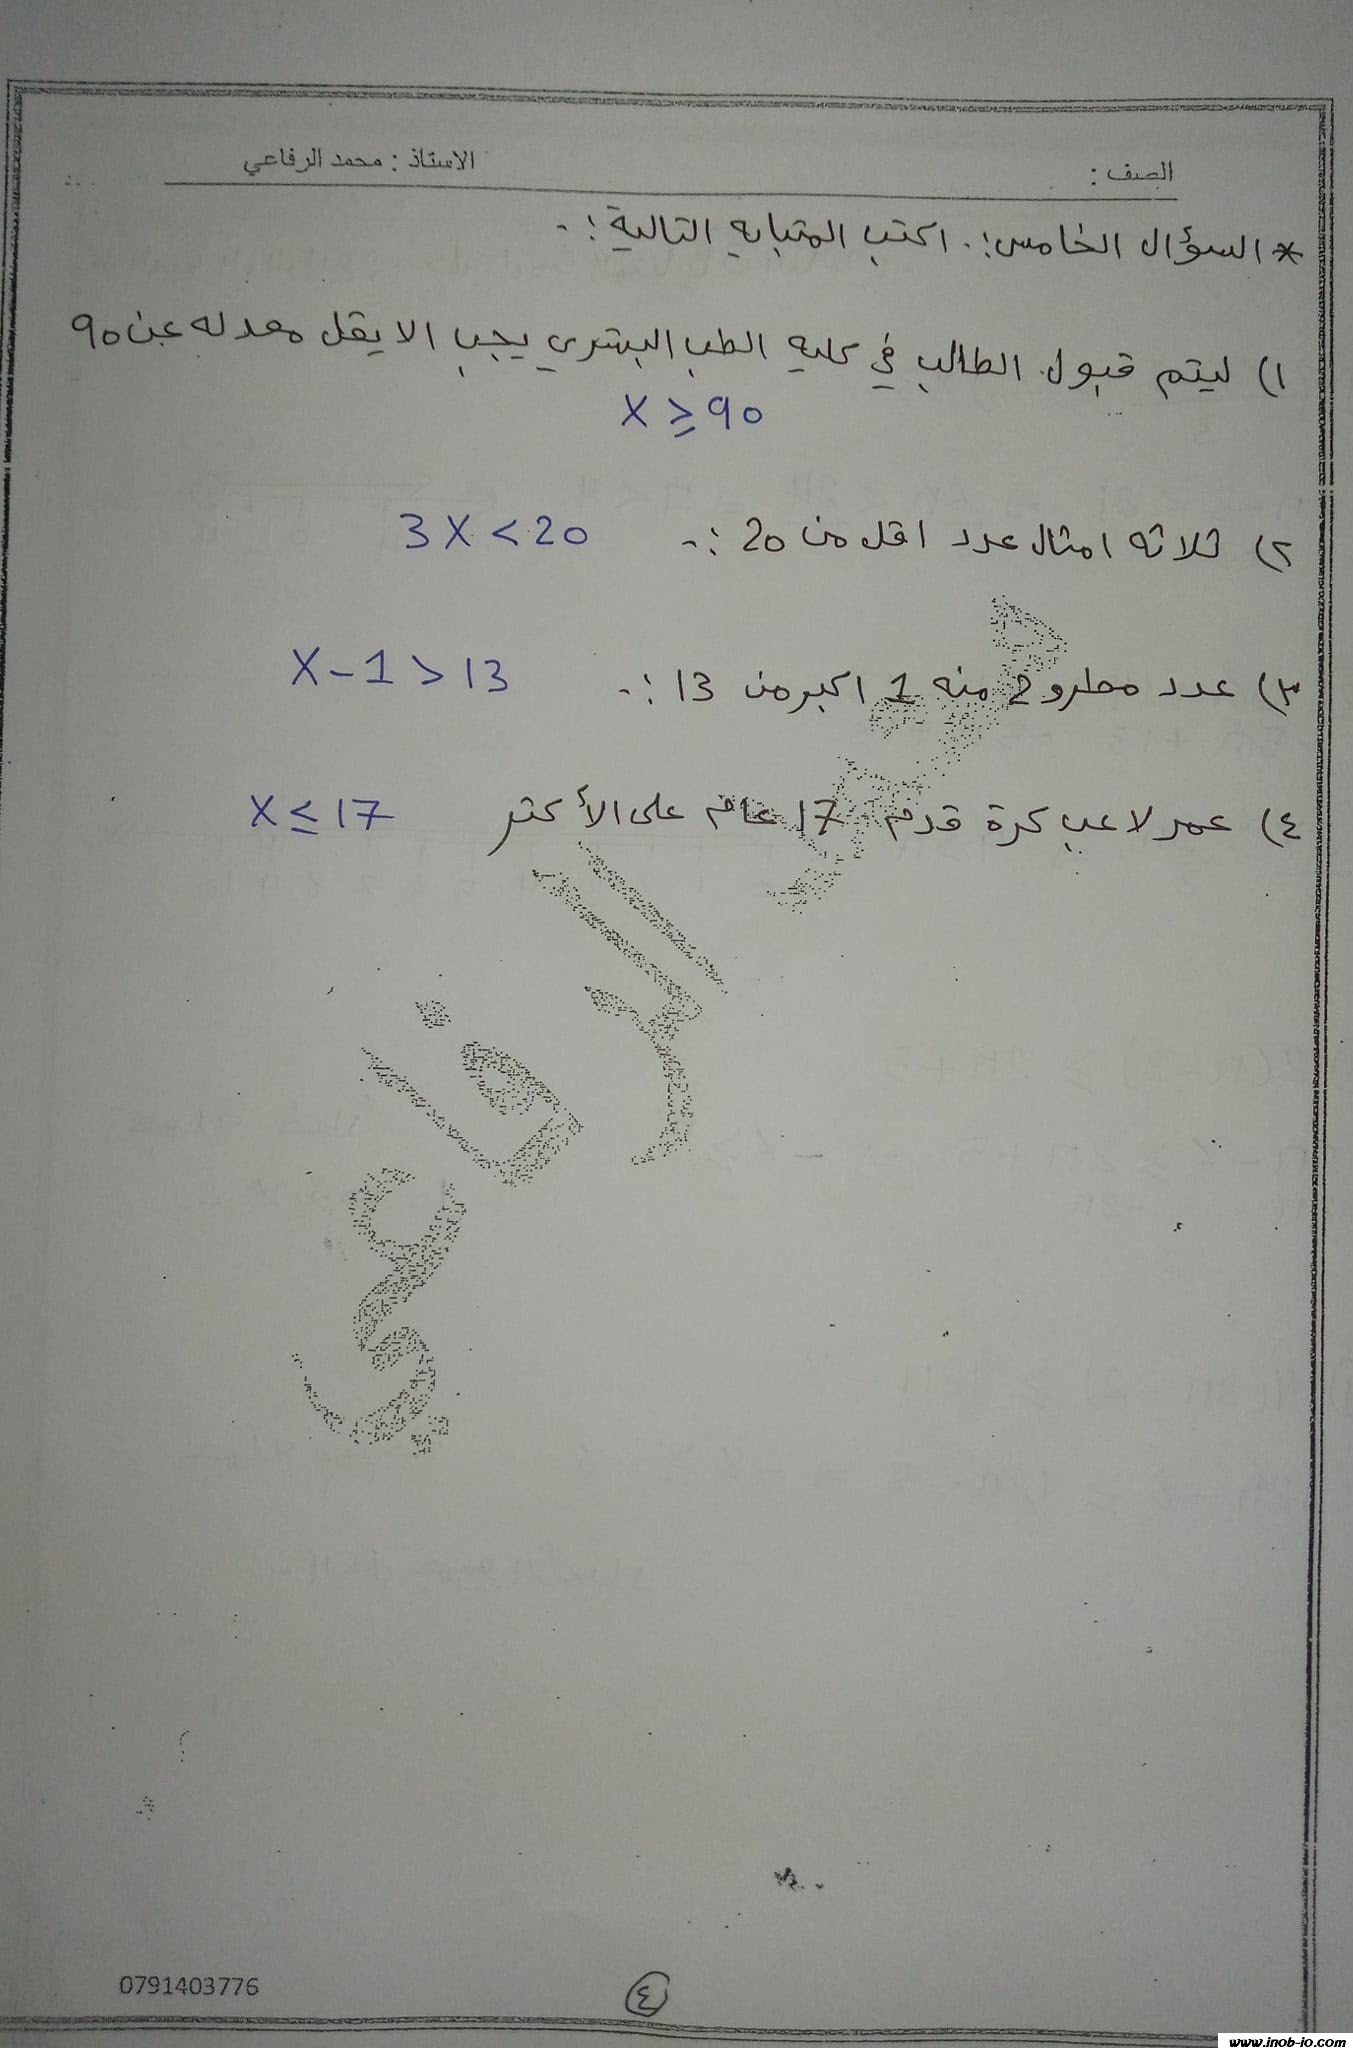 الصف :
الاستاذ : محمد الرفاعي
* السؤال الخامس :. اكتب المتباينه التالية :.
١) ليتم قبول الطالب في كليه الطب البشري يجب الا يقل معدله عن 90
x ≥ 90
٢) ثلاثه امثال عدد اقل من 20 :. 3x < 20
٣) عدد مطروح منه 1 اكبر من 13 :. x - 1 > 13
٤) عمر لاعب كرة قدم 17 عام على الأكثر x ≤ 17
محمد الرفاعي
0791403776
٤
www.jnob-jo.com